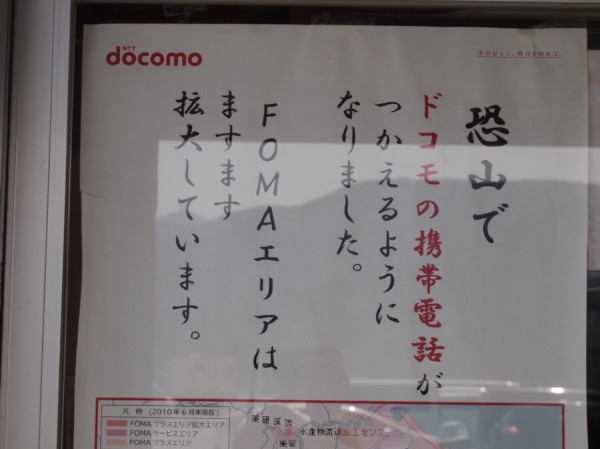 NTT
docomo
手のひらに、明日をのせて。
恐山で
ドコモの携帯電話が
つかえるように
なりました。
FOMAエリアは
ますます
拡大しています。
凡 例 (2010年6月末現在)
FOMAプラスエリア拡大エリア
FOMAサービスエリア
FOMAプラスエリア
薬研渓流
水産物流通加工センター
薬研